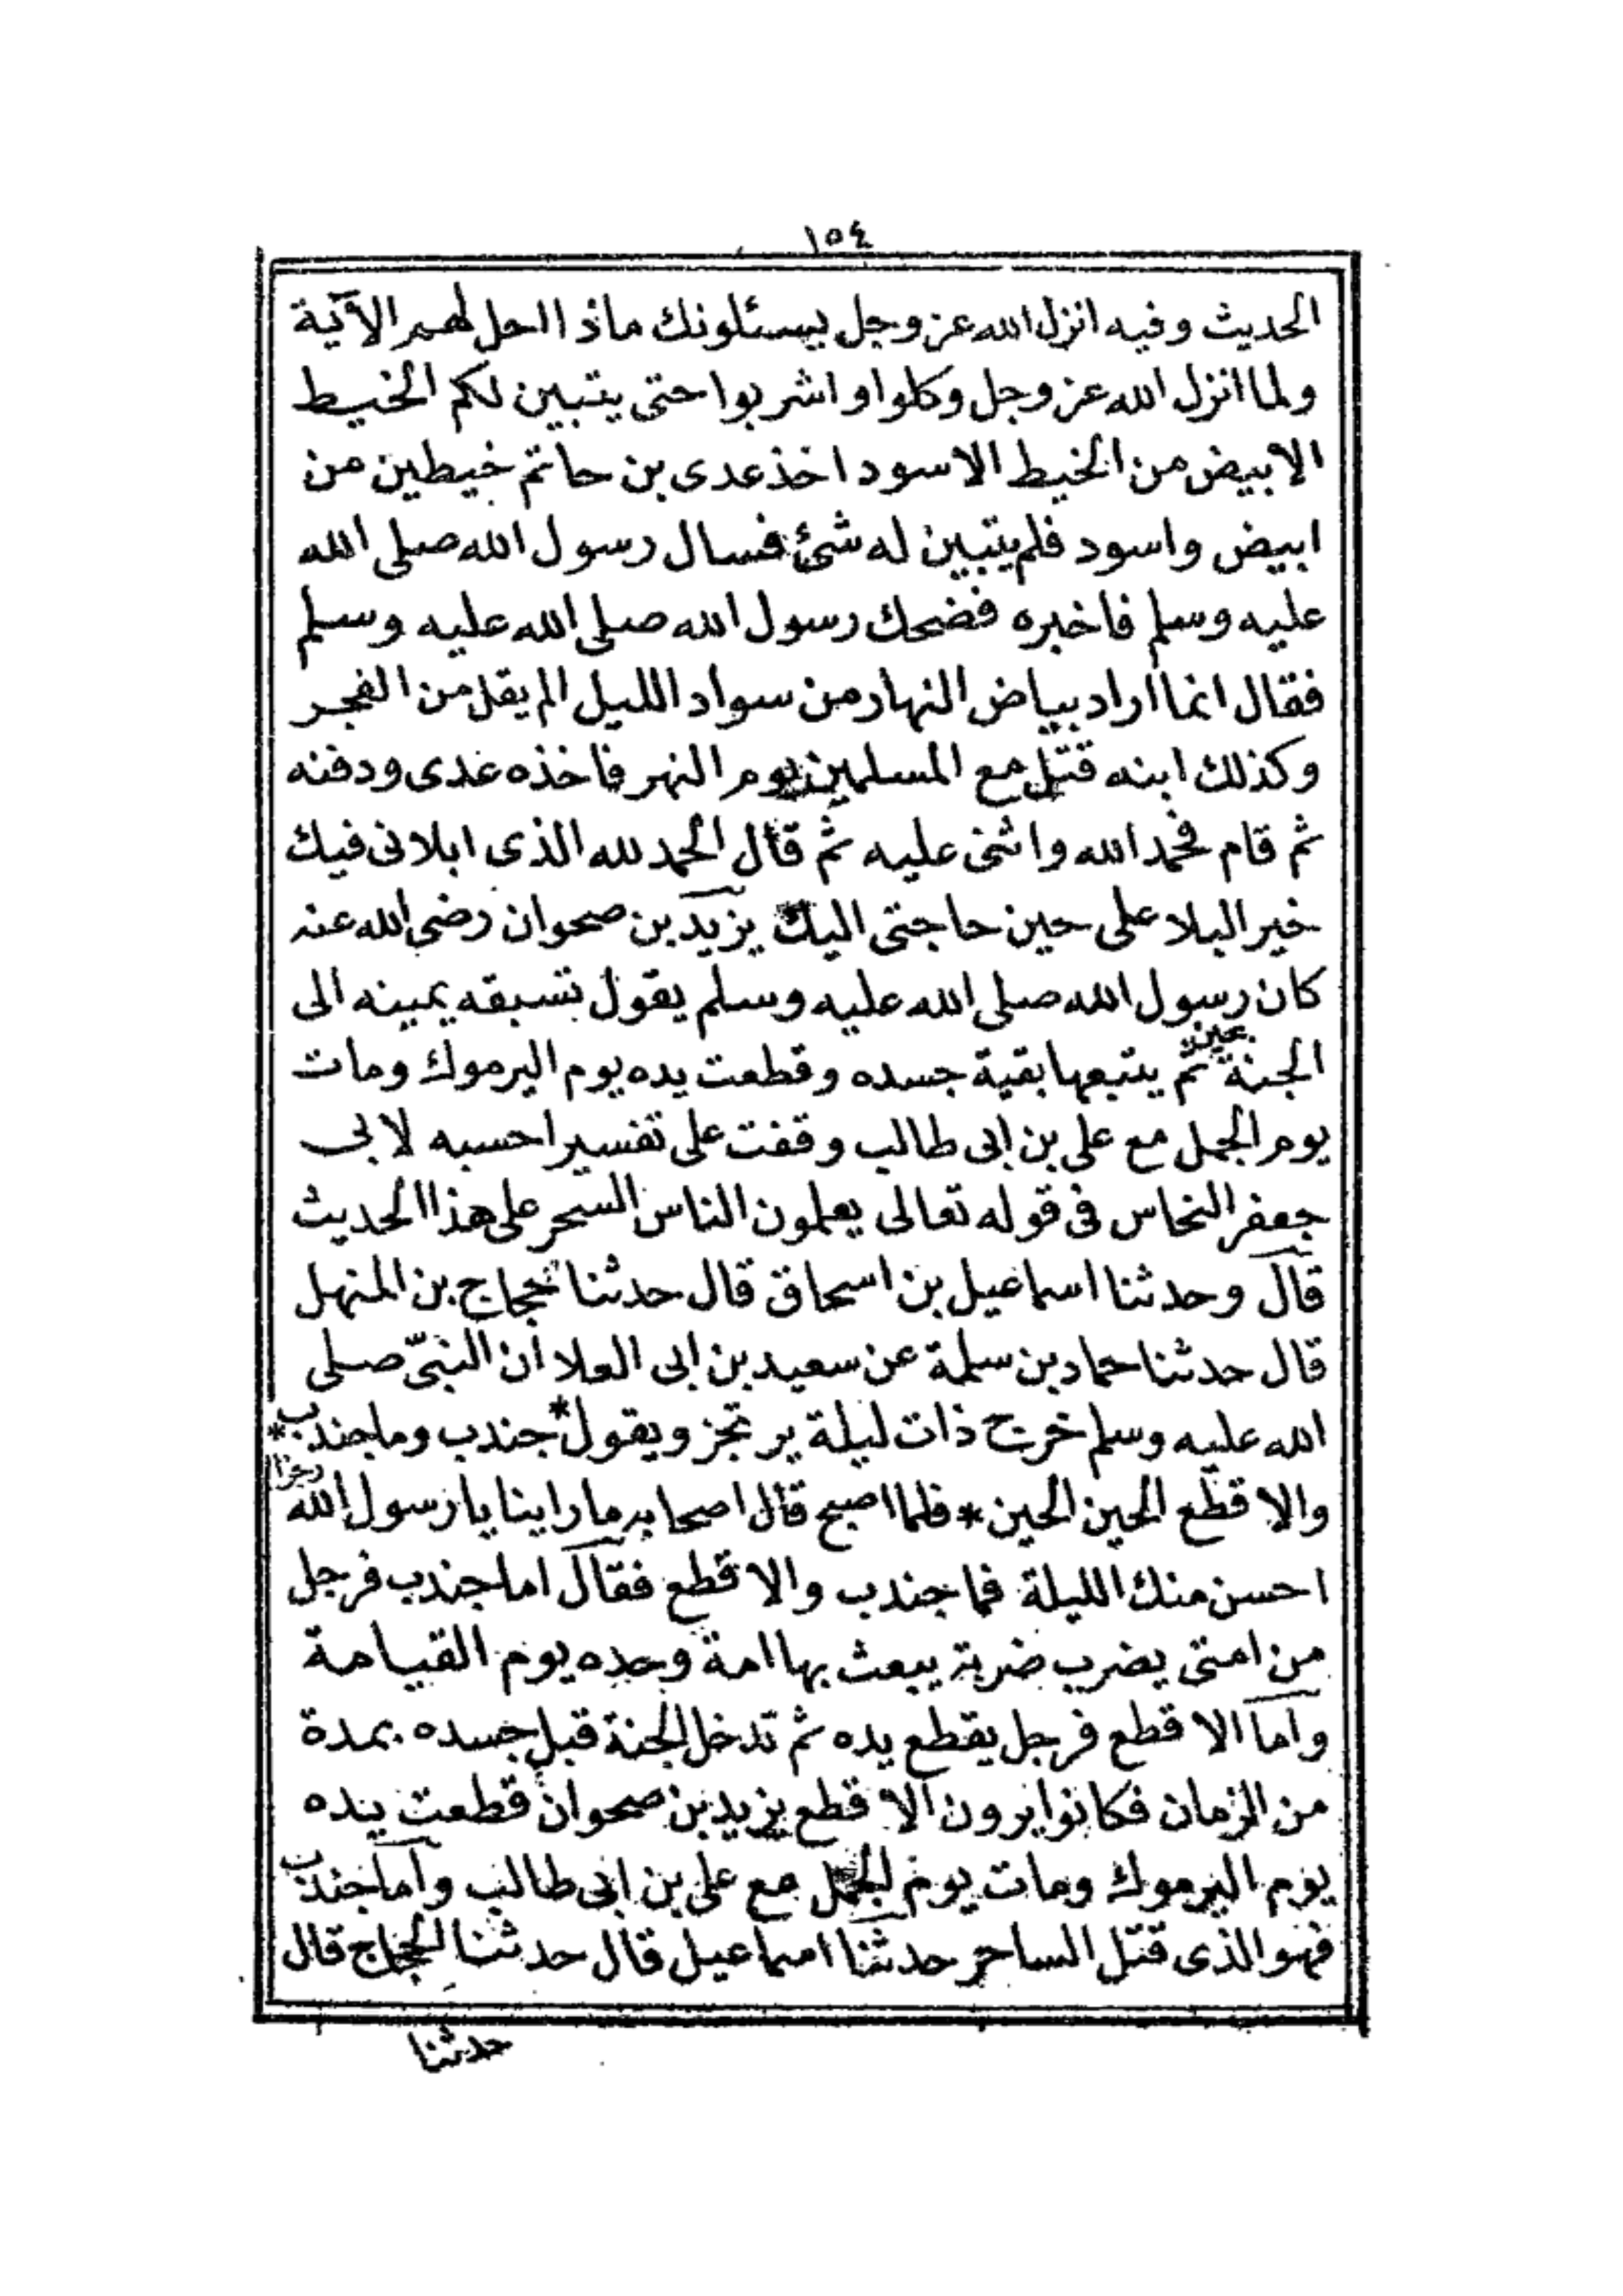 ١٥٤
الحديث وفيه انزل الله عز وجل يسئلونك ماذا احل لهم الآية
ولما انزل الله عز وجل وكلوا واشربوا حتى يتبين لكم الخيط
الابيض من الخيط الاسود اخذ عدى بن حاتم خيطين من
ابيض واسود فلم يتبين له شئ فسال رسول الله صلى الله
عليه وسلم فاخبره فضحك رسول الله صلى الله عليه وسلم
فقال انما اراد بياض النهار من سواد الليل الم يقل من الفجر
وكذلك ابنه قتل مع المسلمين يوم النهر فاخذه عدى ودفنه
ثم قام فحمد الله واثنى عليه ثم قال الحمد لله الذى ابلانى فيك
خير البلا على حين حاجتى اليك يزيد بن صحوان رضى الله عنه
كان رسول الله صلى الله عليه وسلم يقول تسبقه يمينه الى
الجنة ثم يتبعها بقية جسده وقطعت يده يوم اليرموك ومات
يوم الجمل مع على بن ابى طالب وقفت على تفسير احسبه لابى
جعفر النحاس فى قوله تعالى يعلمون الناس السحر على هذا الحديث
قال وحدثنا اسماعيل بن اسحاق قال حدثنا حجاج بن المنهل
قال حدثنا حماد بن سلمة عن سعيد بن ابى العلا ان النبىّ صلى
الله عليه وسلم خرج ذات ليلة يرتجز ويقول * جندب وما جندب *
والاقطع الحين الحين * فلما اصبح قال اصحابه ما راينا يا رسول الله رجزا
احسن منك الليلة فما جندب والاقطع فقال اما جندب فرجل
من امتى يضرب ضربة يبعث بها امة وحده يوم القيامة
واما الاقطع فرجل يقطع يده ثم تدخل الجنة قبل جسده بمدة
من الزمان فكانوا يرون الاقطع يزيد بن صحوان قطعت يده
يوم اليرموك ومات يوم الجمل مع على بن ابى طالب واما جندب
فهو الذى قتل الساحر حدثنا اسماعيل قال حدثنا الحجاج قال
حدثنا